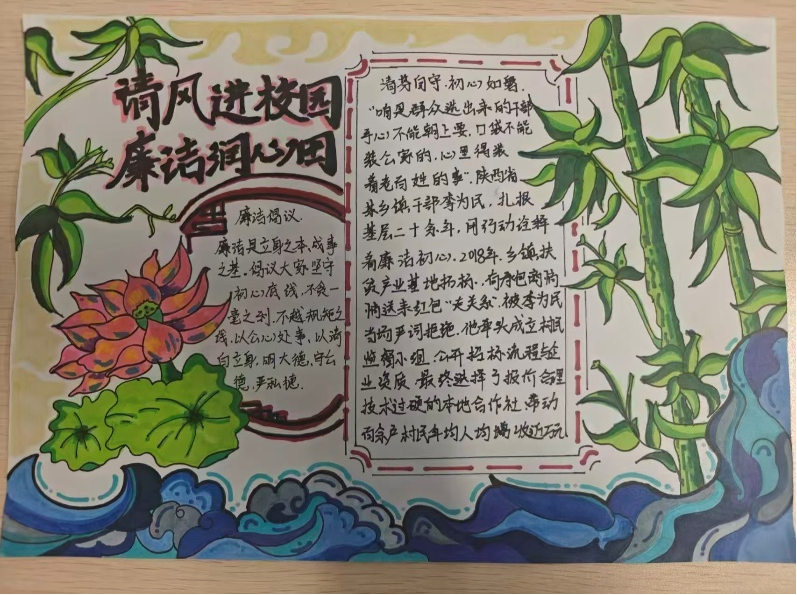 请风进校园
廉洁润心田
廉洁倡议
廉洁是立身之本,成事
之基。倡议大家坚守
初心底线,不贪一
毫之利,不越规矩之
线,以公心处事,以清
白立身,明大德,守公
德,严私德.
清芬自守.初心如磐.
"咱是群众选出来的干部
手心不能朝上要,口袋不能
装公家的,心里得装
着老百姓的事".陕西省
某乡镇干部李为民,扎根
基层二十余年,用行动诠释
着廉洁初心.2018年,乡镇扶
贫产业基地招标.有承包商悄
悄送来红包"走关系".被李为民
当场严词拒绝.他牵头成立村民
监督小组,公开招标流程与企
业资质.最终选择了报价合理
技术过硬的本地合作社,带动
百余户村民年均人均增收近万元